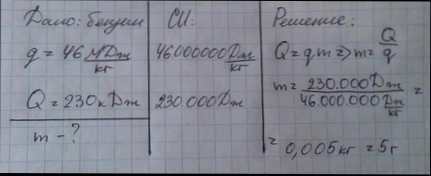 Дано: бензин
q = 46 МДж/кг
Q = 230 кДж
m - ?
СИ:
46000000 Дж/кг
230 000 Дж
Решение:
Q = qm => m = Q/q
m = 230.000 Дж / 46.000.000 Дж/кг =
= 0,005 кг = 5 г